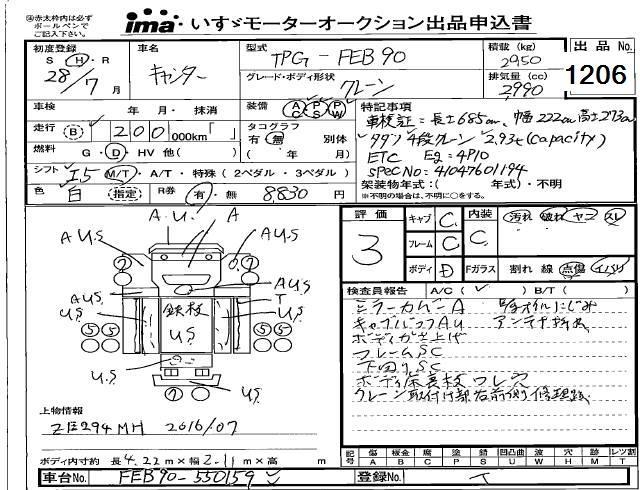 ④赤太枠内は必ず
ボールペンで
ご記入下さい。
ima いすゞモーターオークション出品申込書
初度登録
S H・R
28/7月
車名
キャンター
型式
TPG-FEB90
グレード・ボディ形状
クレーン
積載(kg)
2950
排気量(cc)
2990
出品No.
1206
車検 年・月・抹消
走行 B 200 000km「 」
燃料 G・D・HV 他( )
シフト I5 M/T・A/T・特殊(2ペダル・3ペダル)
色 白 指定 R券 有・無 8,830 円
装備 AC PS PW
タコグラフ
有 無 別体
( 年 月)
特記事項
車検証=長さ685cm、幅222cm高さ273cm
タダノ4段クレーン 2.93t(Capacity)
ETC Eg=4P10
SPEC No=41047601194
架装物年式:( 年式)・不明
※不明の場合は、不明に○をする。
A.U. A
A U.S
A U.S
⑦
⑦
A U.S
A U.S
T
鉄板
U.S
U.S
U.S
⑤⑤
⑤⑤
U.S
U.S
上物情報
ZE294MH 2016/07
ボディ内寸約 長4.22m×幅2.11m×高 m
車台No. FEB90-550159
評価
3
キャブ C
フレーム C
ボディ D
内装 C
汚れ 破れ ヤニ スレ
Fガラス 割れ 線 点傷 イバリ
検査員報告 A/C( ✓ ) B/T( )
ミラーカバーA
オイルにじみ
キャブルーフAU アンテナ折れ
ボディかさ上げ
フレームSC
下回りSC
ボディ床長枝ワレ穴
クレーン取付け部右前側修理跡
記号 傷 板金 腐 塗 錆 凹凸曲 波 穴 跡 レツ割
A B C P S U W H M T
登録No.